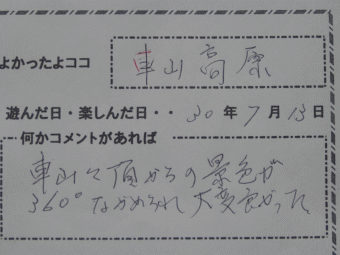 よかったよココ 車山高原
遊んだ日・楽しんだ日・・ 30 年 7 月 13 日
何かコメントがあれば
車山て頂からの景色が
360°ながめみれ大変良かった